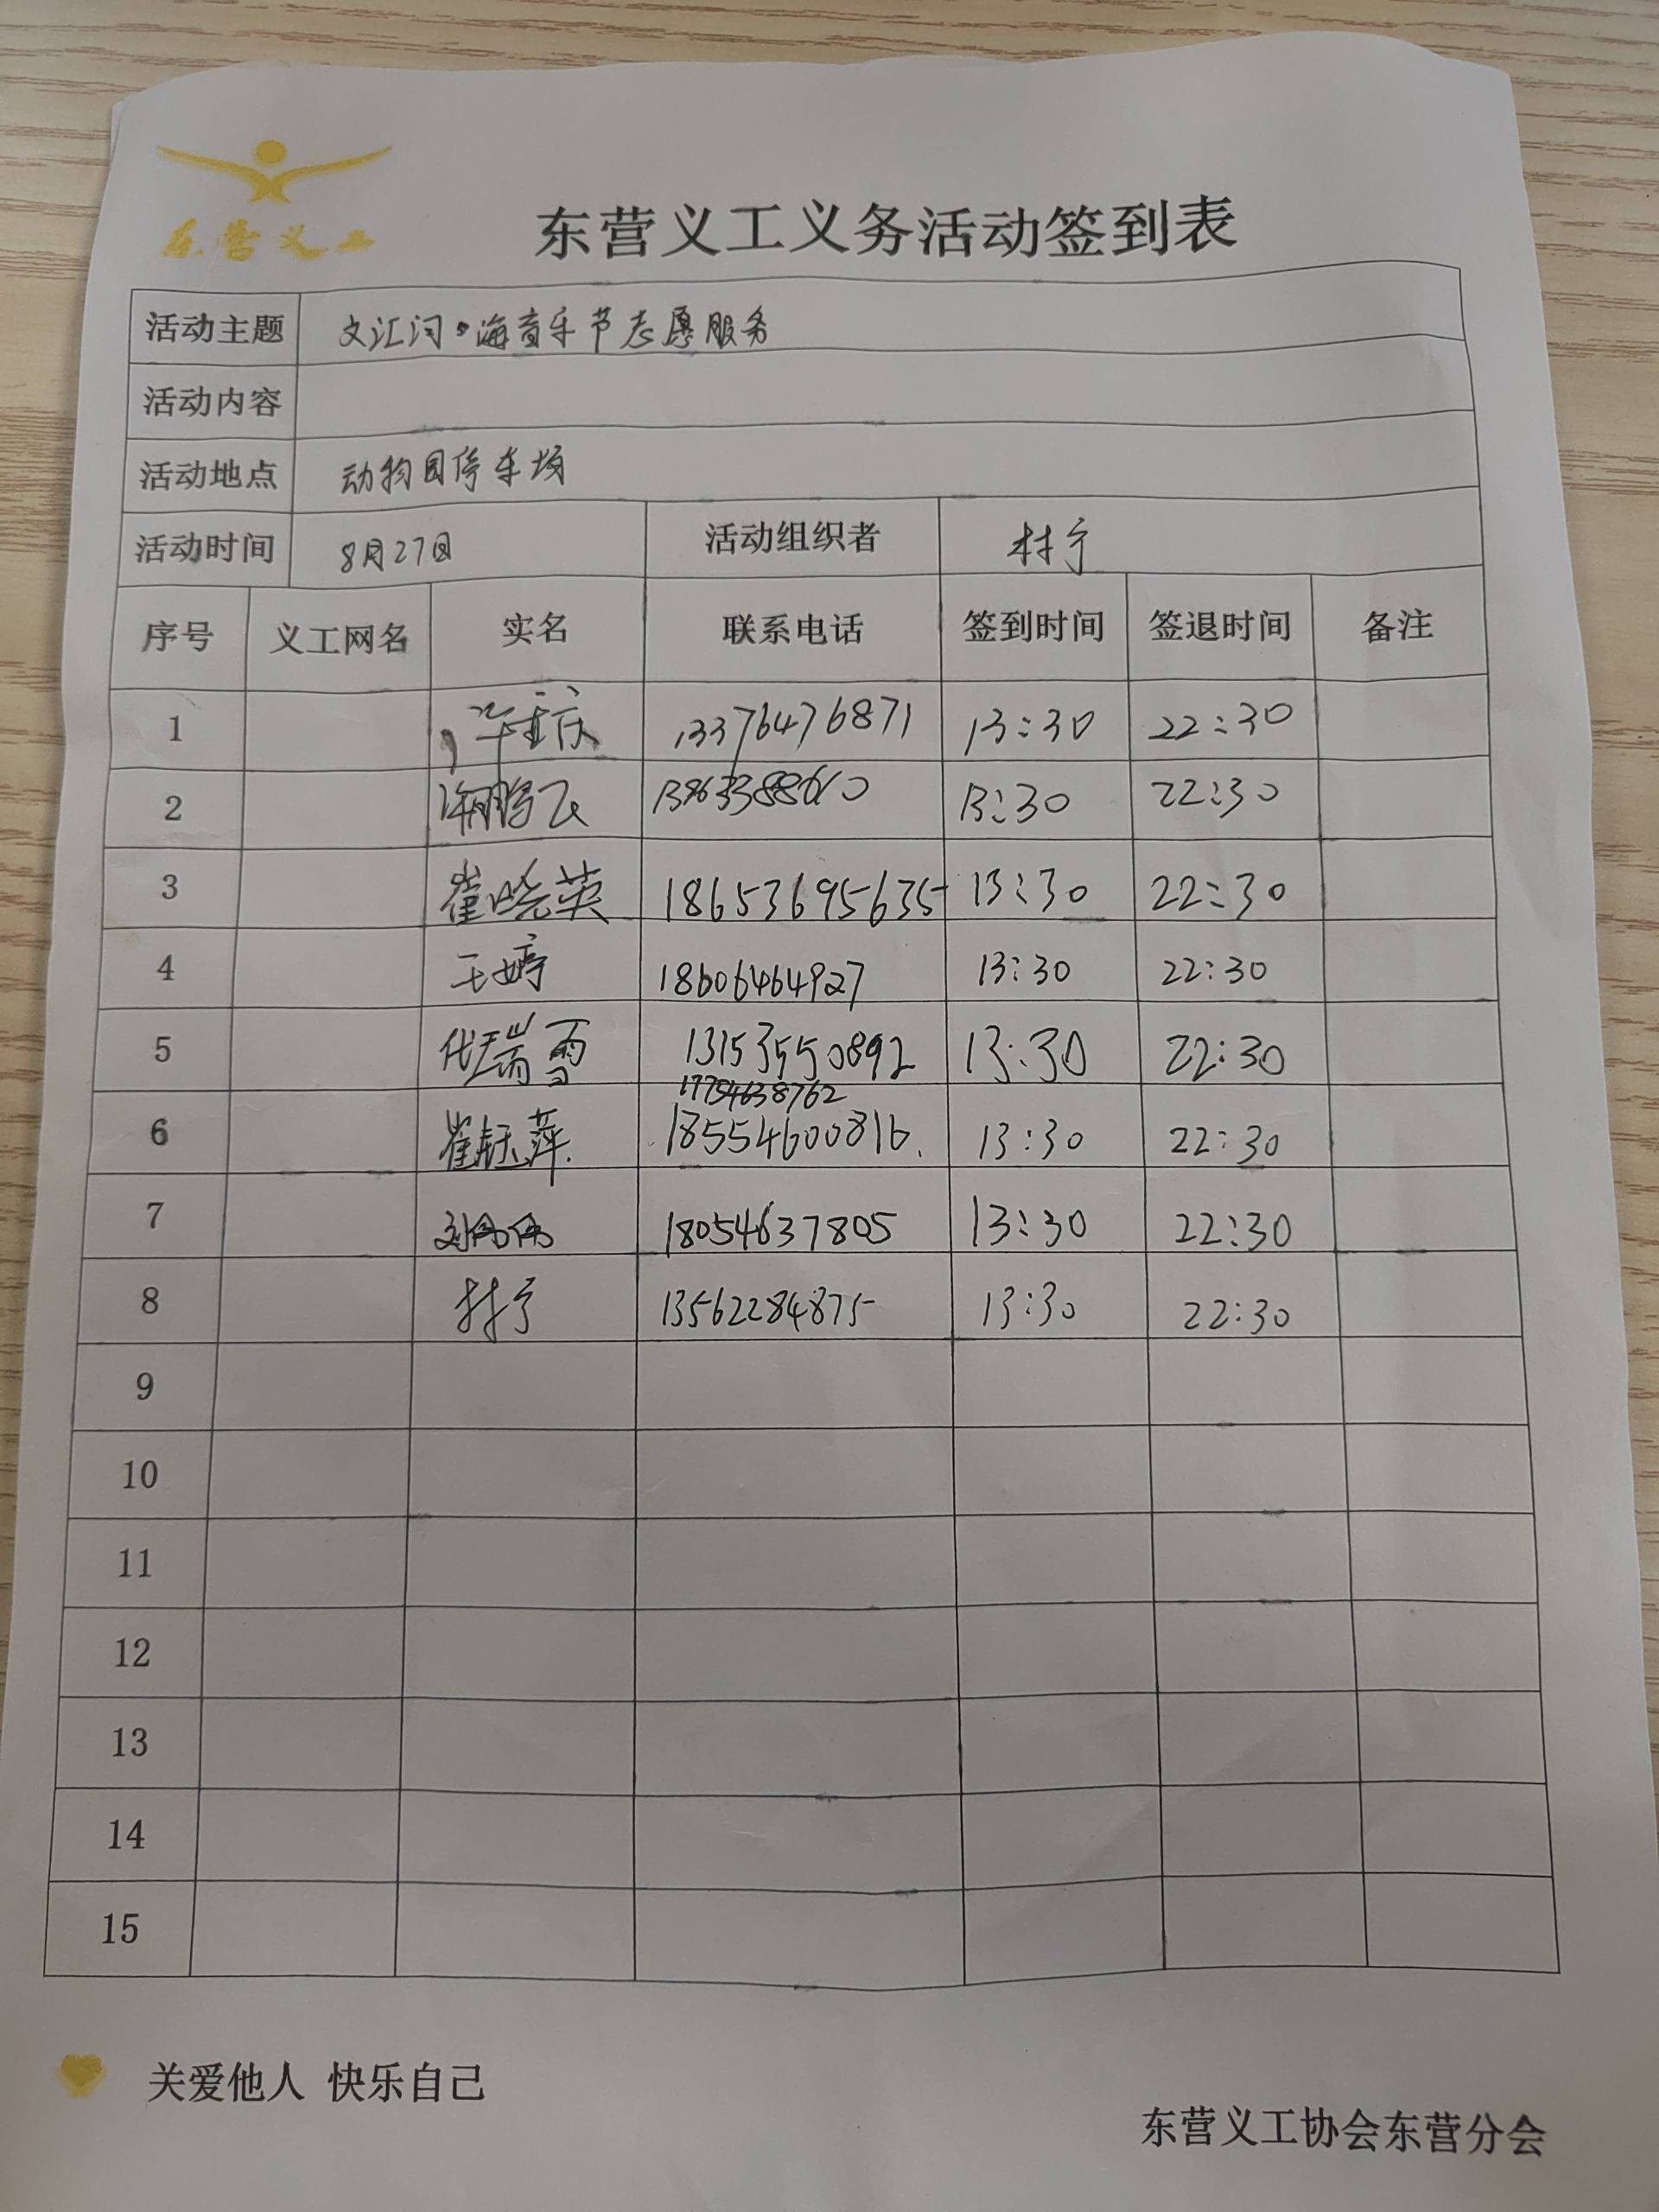 东营义工
东营义工义务活动签到表
活动主题 文汇河·海音乐节志愿服务
活动内容
活动地点 动物园停车场
活动时间 8月27日 活动组织者
序号 义工网名 实名 联系电话 签到时间 签退时间 备注
1 13376476871 13:30 22:30
2 鹏飞 13:30 22:30
3 崔晓英 18653695635 13:30 22:30
4 王婷 18606464927 13:30 22:30
5 代瑞雪 13153550892 13:30 22:30
17754638762
6 崔钰萍 18554600816 13:30 22:30
7 刘 18054637805 13:30 22:30
8 13562284875 13:30 22:30
9
10
11
12
13
14
15
关爱他人 快乐自己
东营义工协会东营分会